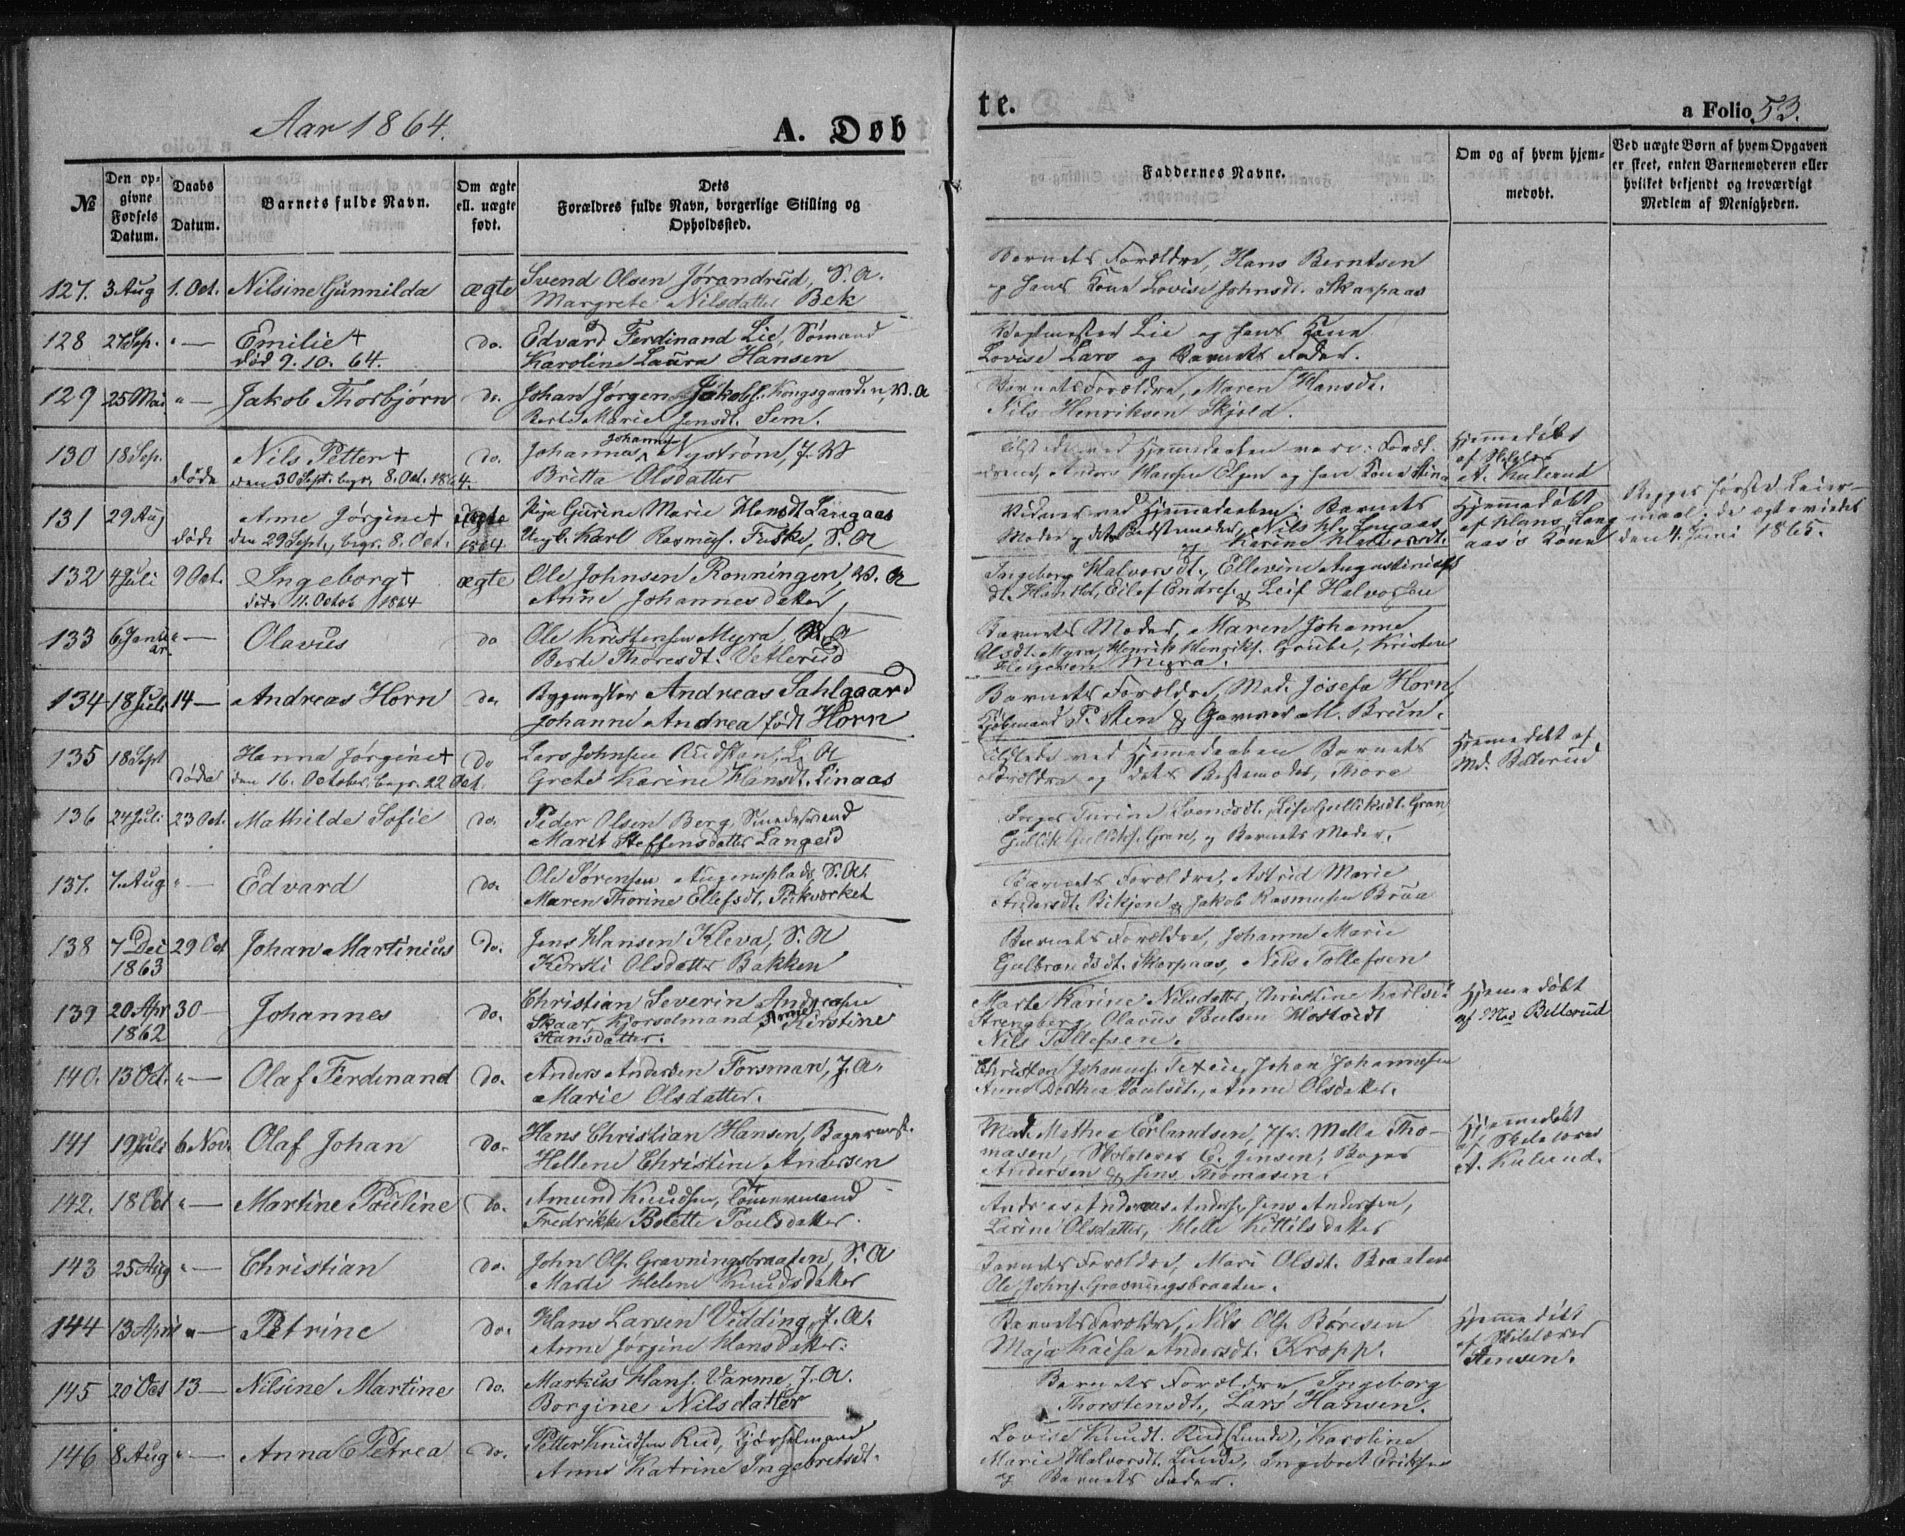 Aar 1864.
A. Døbte.
a Folio 53.
№
Den opgivne Fødsels Datum.
Daabs Datum.
Barnets fulde Navn.
Om ægte ell. uægte født.
Dets Forældres fulde Navn, borgerlige Stilling og Opholdssted.
Faddernes Navne.
Om og af hvem hjemmedøbt.
Ved uægte Børn af hvem Opgaven er skeet, enten Barnemoderen eller hvilket bekjendt og troværdigt Medlem af Menigheden.
127. 3 Aug 1. Oct. Nilsine Gunnilda ægte Svend Olsen Jørandrud, S. A.
Margrete Nilsdatter Bek
Barnets Forældre, Hans Berntsen
og hans Kone Lovise Johnsdt. Skarpaas
128 27 Sep. "— Emilie † do. Edvard Ferdinand Lie, Sømand
død 9. 10. 64. Karoline Laura Hansen
Lie og hans Kone
Lovise Lars og Barnets Fader.
129 25 Mai "— Jakob Thorbjørn do. Johan Jørgen Jakobs. Kongsgaarden, V. A
Berte Marie Jensdt. Sem.
Barnets Forældre, Maren Hansdt.
Nils Henriksen Skjold.
130 18 Sep. Nils Petter † do. Johannes Johannes Nystrøm, J. V
døde den 30 Sept. begr. 8. Oct. 1864. Britta Olsdatter
Tilstede ved Hjemmedaaben vare: Forældrene, Anders Hansen og hans Kone Stina
Hjemmedøbt
af Skolelærer
A. Kulerud
131 29 Aug Anne Jørgine † uægte Pige Gurine Marie Hansdt Langaas
døde den 29 Sept., begr. 8. Oct. 1864 Ungk. Karl Rasmus. Fiske, S. A
Vidner ved Hjemmedaaben: Barnets
Moder og dets Bedstemoder, Nils H. Langaas
og Karine Halvorsdt.
Hjemmedøbt
af Hans Langaas's Kone
Begges første Leiermaal; de ægteviedes
den 4. Juni 1865.
132 4 Juli 9 Oct. Ingeborg † ægte Ole Johnsen Rønningen, V. A
døde 11. Octob 1864 Anne Johannesdatter
Ingeborg Halvorsdt., Ellevine Augustinusdt. Eilef Endres. & Leif Halvorsen
133 6 Januar "— Olavus do Ole Kristensen Myra, V. A
Berte Thoresdt. Vetlerud
Barnets Moder, Maren Johanne
Olsdt. Myra, Henrik Henriks. Grube, Kristen
Helgesen Myra.
134 18 Juli 14— Andreas Horn do. Bygmester Andreas Sahlgaard
Johanne Andrea født Horn
Barnets Forældre, Mad. Josefa Horn,
Kjøbmand P. Steen & Garver M. Bruun.
135 18 Sept Hanna Jørgine † do Lars Johnsen Rudstøen, L. A
døde den 16. October, begr. 22 Oct. Grete Karine Hansdt. Linaas
Tilstede ved Hjemmedaaben Barnets
Forældre og dets Bestemoder, Thora
Hjemmedøbt af
Md. Bellerud
136 24 Juli 23 Oct. Mathilde Sofie do. Peder Olsen Berg, Smedesvend
Marit Steffensdatter Langeid
Inger Turine Svendsdt. Lise Gulliksdt. Gran
Gullik Gulliks. Gran, og Barnets Moder.
137. 7. Aug "— Edvard do. Ole Sørensen Augensplads, S. A.
Maren Thorine Ellefsdt. Pukværket
Barnets Forældre, Astrid Marie
Andersdt. Bikjøn & Jakob Rasmusen Brua
138 7 Dec 1863 29 Oct Johan Martinius do. Jens Hansen Kleva, S. A
Kersti Olsdatter Bakken
Barnets Forældre, Johanne Marie
Gulbrandsdt. Skarpaas, Nils Tollefsen
139 20 Apr 1862 30— Johannes do. Christian Severin Andersen
Skaar, Kjørselmand & Anne Kirstine
Hansdatter.
Marte Karine Nilsdatter, Christine Karlsdt
Strengberg, Olavus Paulsen Hostvedt
Nils Tollefsen.
Hjemmedøbt
af Md Bellerud
140. 13 Oct. "— Olaf Ferdinand do. Anders Andersen Forsman, J. A.
Marie Olsdatter.
Christen Johannes. Johan Johannesen
Anne Dorthea Poulsdt., Anne Olsdatter.
141 19 Juli 6 Nov. Olaf Johan do. Hans Christian Hansen, Bagermest.
Hellene Christine Andersen
Mad. Mathea Erlandsen, Jfr. Mella Thomasen, Skolelærer C. Jensen, Bager
Andersen & Jens Thomasen.
Hjemmedøbt
af Skolelærer
A. Kulerud.
142. 18 Oct "— Martine Pauline do. Amund Knudsen, Tømmermand
Fredrikke Bolette Poulsdatter.
Andreas Anders. Jens Andersen,
Larine Olsdatter, Helle Kittilsdatter
143 25 Aug "— Christian do. John Ols. Gravningsbraaten, S. A
Marte Helene Knudsdatter
Barnets Forældre, Mari Olsdt. Braaten
Ole Johns. Gravningsbraaten.
144 13 April "— Petrine do. Hans Larsen Vidding, J. A.
Anne Jørgine Hansdatter.
Barnets Forældre, Nils Ols. Børresen
Maja Kaisa Andersdt. Kropp.
Hjemmedøbt
af Skolelærer
Jensen.
145 20 Oct 13— Nilsine Martine do. Markus Hans. Varme, J. A.
Borgine Nilsdatter
Barnets Forældre, Ingeborg
Thorstensdt., Lars Hansen.
146 8 Aug "— Anna Petrea do. Petter Knudsen Rud, Kjørselmand
Anne Katrine Ingebretsdt.
Lovise Knudt. Rud (Lunde), Karoline
Marie Halvorsdt. Lunde, Ingebret Eriksen
og Barnets Fader.